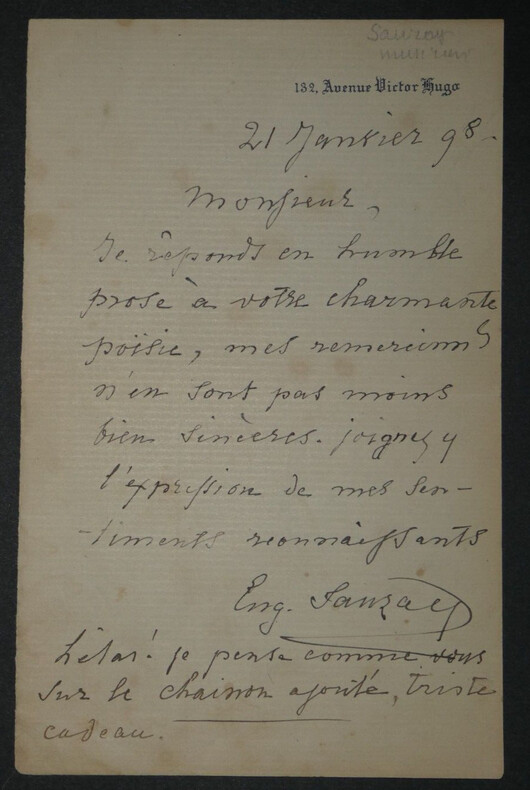 Sauzay
musicien
132, Avenue Victor Hugo
21 Janvier 98-
Monsieur,
Je réponds en humble
prose à votre charmante
poësie, mes remerciem^ts
n'en sont pas moins
bien sincères. joignez y
l'expression de mes sen-
-timents reonnaissants
Eug. Sauzay
hélas! je pense comme vous
sur le chainon ajouté, triste
cadeau.